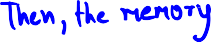 Then, the memory